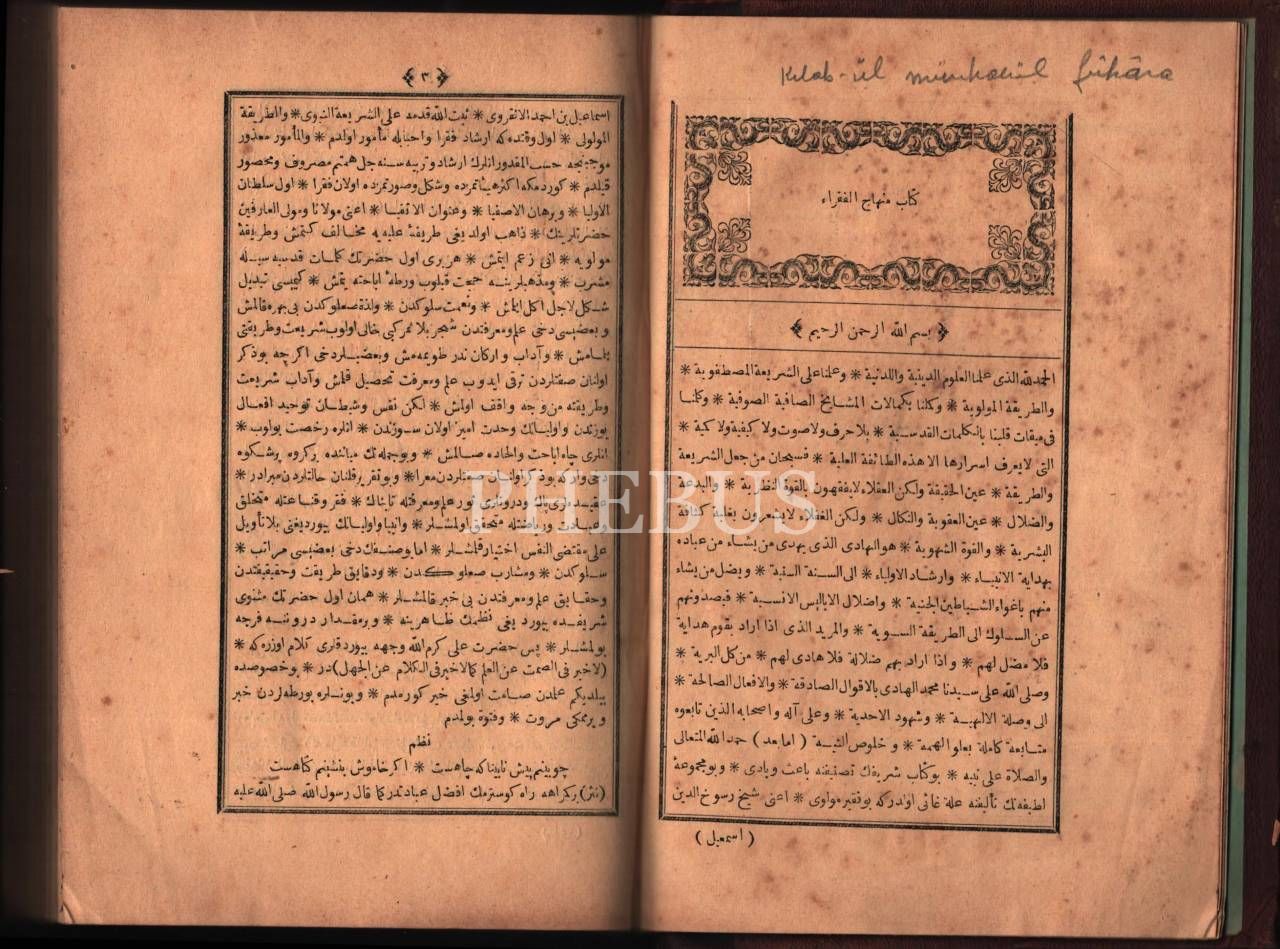 Kitab-ül
fükâra
كتاب منهاج الفقراء
بسم الله الرحمن الرحيم
الحمدلله الذى علمنا العلوم الدينية واللدنية * وعلمنا على الشريعة المصطفوية *
والطريقة المولوية * وكملنا بكمالات المشايخ الصافية الصوفية * وكلمنا
فى ميقات قلبنا بالكلمات القدسية * بلا حرف ولا صوت ولا كيفية ولا كمية *
التى لا يعرف اسرارها الا هذه الطائفة العلية * فسبحان من جعل الشريعة
والطريقة * عين الحقيقة ولكن العقلاء لا يفقهون بالقوة النظرية * والبدعة
والضلال * عين العقوبة والنكال * ولكن الغفلاء لا يشعرون بغلبة كثافة
البشرية * والقوة الشهوية * هو الهادى الذى يهدى من يشاء من عباده
بهداية الانبياء * وارشاد الاولياء * الى السنة السنية * ويضل من يشاء
منهم باغواء الشياطين الجنية * واضلال الاباليس الانسية * فيصدونهم
عن السلوك الى الطريقة السوية * والمريد الذى اذا اراد بقوم هداية
فلا مضل لهم * واذا اراد بهم ضلالة فلا هادى لهم * من كل البرية *
وصلى الله على سيدنا محمد الهادى بالاقوال الصادقة * والافعال الصالحة *
الى وصلة الالهية * وشهود الاحدية * وعلى آله واصحابه الذين تابعوه
متابعة كاملة بعلو الهمة * و خلوص النية * ( اما بعد ) حمد الله المتعالى
والصلاة على نبيه * بو كتاب شريفك تصنيفنه باعث وبادى * وبو مجموعۀ
لطيفه نك تأليفنه علة غائى اولدر كه بو فقير مولوى * اعنى شيخ رسوخ الدين
( اسمعيل )
٣
اسماعيل بن احمد الانقروى * ثبت الله قدمه على الشريعة النبوى * والطريقة
المولوى * اول وقتده كه ارشاد فقرا واحبايه مأمور اولدم * والمأمور معذور
موجبنجه حسب المقدور انلرك ارشاد و تربيه سنه جل همتم مصروف ومحصور
قيلدم * كوردمكه اكثر هيئاتمزده وشكل وصورتمزده اولان فقرا * اول سلطان
الاوليا * وبرهان الاصفيا * وعنوان الاتقيا * اعنى مولانا ومولى العارفين
حضرتلرينك ذاهب اولديغى طريقۀ عليه يه مخالف كيتمش وطريقۀ
مولويه * انى زعم ايتمش * هر برى اول حضرتك كلمات قدسيه سيله
مشرب * ومذهبلرينه حجت قيلوب ورطۀ اباحته يتمش * كيميسى تبديل
شكل لاجل اكل ايتمش * ونعمت سلوكدن * ولذة صعلوكدن بى بهره قالمش
و بعضيسى دخى علم ومعرفتدن شجر بلا ثمر كبى خالى اولوب شريعت وطريقتى
* وآداب و اركان ندر طويمه مش وبعضيلر دخى اكرچه بو ذكر
اولنان صفتلردن ترقى ايدوب علم ومعرفت تحصيل قلمش وآداب شريعت
وطريقته من وجه واقف اولمش * لكن نفس وشيطان توحيد افعال
يوزندن واوليانك وحدت اميز اولان سوزندن * انلره رخصت بولوب *
انلرى چاه اباحت والحاده صالمش * و بو جمله نك مياننده بر كروه پر شكوه
دخى واركه بو ذكر اولنان
على مقتضى النفس اختيار قلمشلر * اما بو صنفك دخى بعضيسى مراتب *
سلوكدن * ومشارب صعلوكدن * ودقايق طريقت وحقيقتدن
وحقايق علم ومعرفتدن بى خبر قالمشلر * همان اول حضرتك مثنوى
شريفده بيورديغى نظمك ظاهرينه * وبر مقدار دروننه فرجه
بولمشلر * پس حضرت على كرم الله وجهه بيوردقارى كلام اوزره كه *
(لا خير فى الصمت عن العلم كما لا خير فى الكلام عن الجهل) در * بو خصوصده
بيلديكم علمدن صامت اولمغى خير كورمدم * وبونلره بو ورطه لردن خبر
ويرمكى مروت * وفتوة بولدم
نظم
چو بينم پيش نابينا كه چاهست * اكر خاموش بنشينم كناهست
(نثر) بركمراهه راه كوسترمك افضل عبادتدر كما قال رسول الله صلى الله عليه
PHEBUS